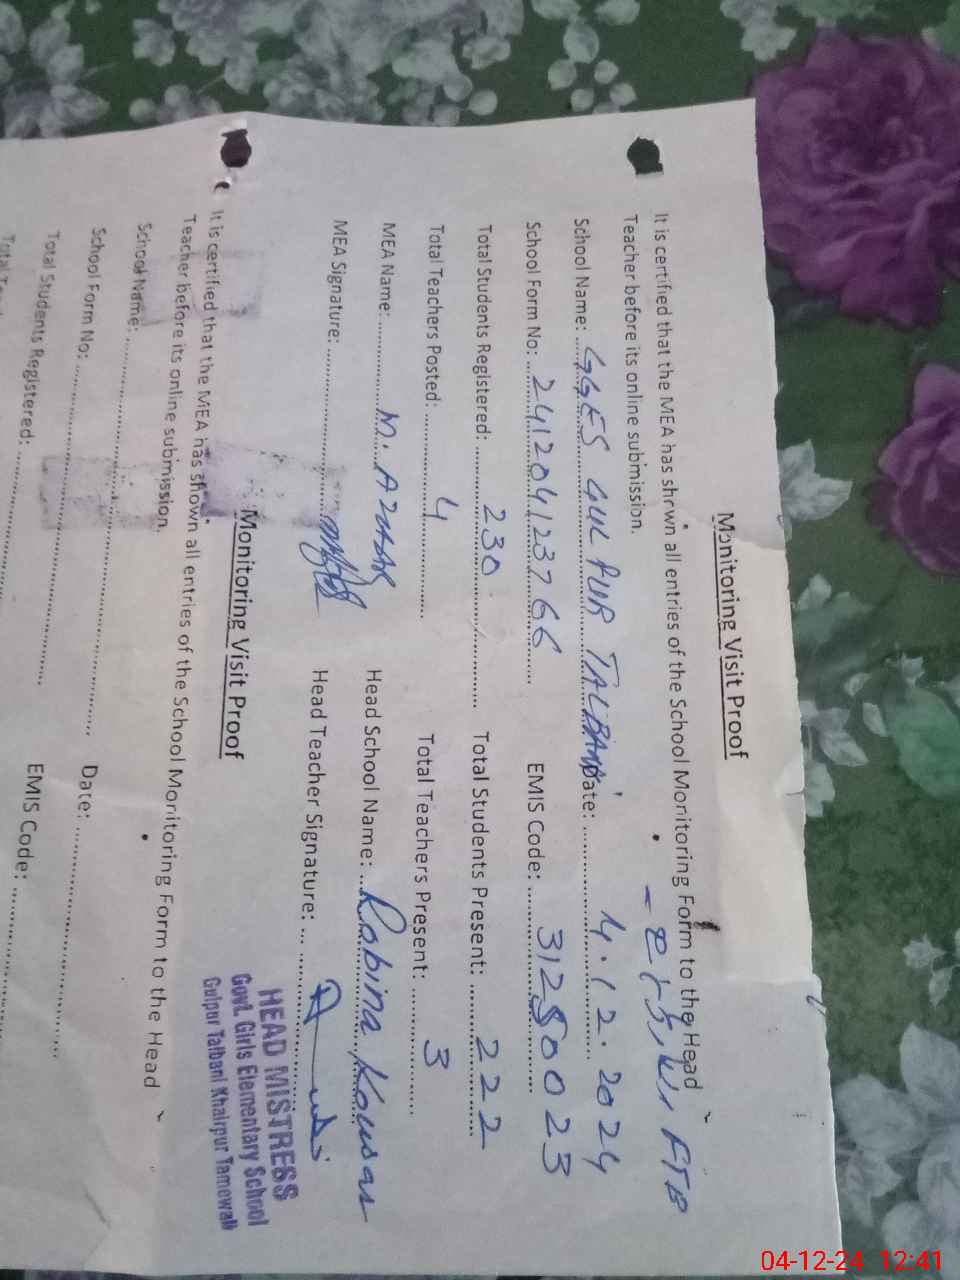 Monitoring Visit Proof
It is certified that the MEA has shown all entries of the School Monitoring Form to the Head
Teacher before its online submission.
FTB
School Name: GGES GUL PUR TALBANI Date: 4.12.2024
School Form No: 241204123766 EMIS Code: 31250023
Total Students Registered: 230 Total Students Present: 222
Total Teachers Posted: 4 Total Teachers Present: 3
MEA Name: M. Azhar Head School Name: Robina Kousar
MEA Signature: Head Teacher Signature:
HEAD MISTRESS
Govt. Girls Elementary School
Gulpur Talbani Khairpur Tamewali
Monitoring Visit Proof
It is certified that the MEA has shown all entries of the School Monitoring Form to the Head
Teacher before its online submission.
School Name: Date:
School Form No: EMIS Code:
Total Students Registered:
04-12-24 12:41